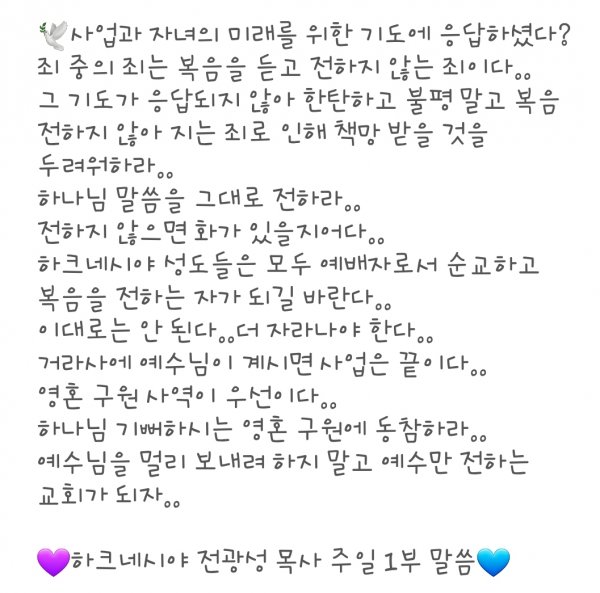 🕊사업과 자녀의 미래를 위한 기도에 응답하셨다?
죄 중의 죄는 복음을 듣고 전하지 않는 죄이다。。
그 기도가 응답되지 않아 한탄하고 불평 말고 복음
전하지 않아 지는 죄로 인해 책망 받을 것을
두려워하라。。
하나님 말씀을 그대로 전하라。。
전하지 않으면 화가 있을지어다。。
하크네시야 성도들은 모두 예배자로서 순교하고
복음을 전하는 자가 되길 바란다。。
이대로는 안 된다。。더 자라나야 한다。。
거라사에 예수님이 계시면 사업은 끝이다。。
영혼 구원 사역이 우선이다。。
하나님 기뻐하시는 영혼 구원에 동참하라。。
예수님을 멀리 보내려 하지 말고 예수만 전하는
교회가 되자。。
💜하크네시야 전광성 목사 주일 1부 말씀💙